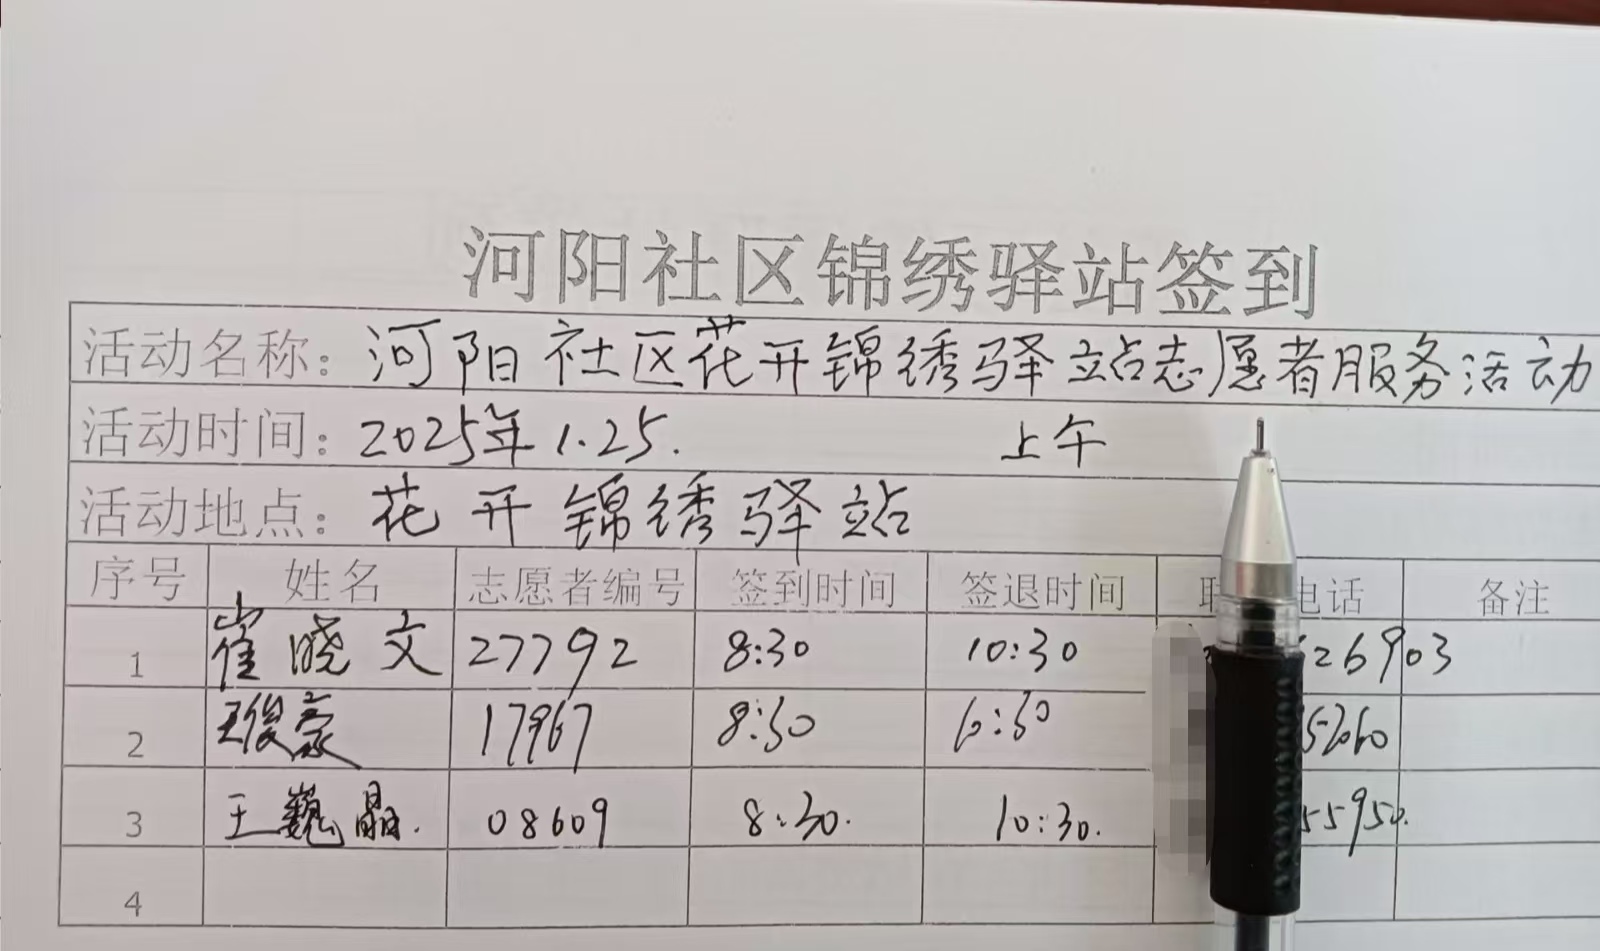 河阳社区锦绣驿站签到
活动名称：河阳社区花开锦绣驿站志愿者服务活动
活动时间：2025年1.25. 上午
活动地点：花开锦绣驿站
序号 姓名 志愿者编号 签到时间 签退时间 电话 备注
1 崔晓文 27792 8:30 10:30 26903
2 王俊豪 17967 8:30
3 王巍晶. 08609 8:30. 10:30. 55950.
4